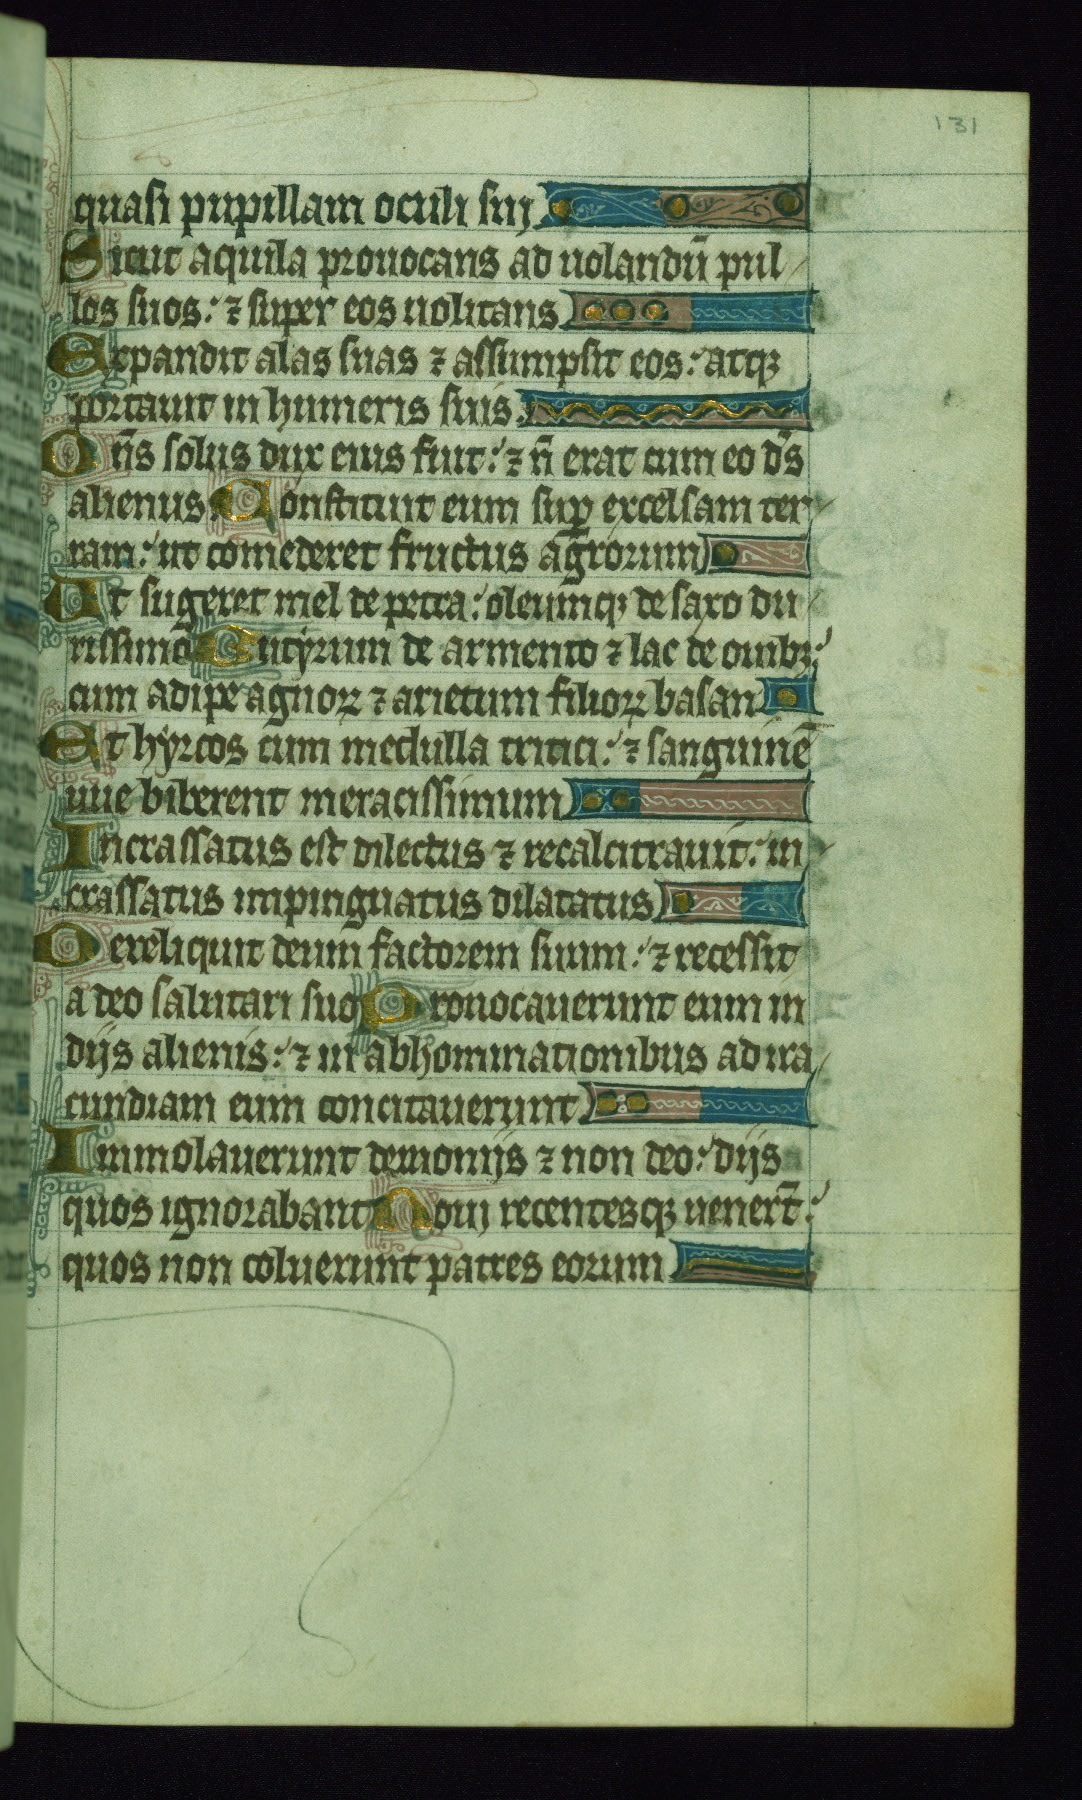 131
quasi pupillam oculi suij
Sicut aquila prouocans ad uolandū pul
los suos: ⁊ super eos uolitans
Expandit alas suas ⁊ assumpsit eos: atqꝫ
portauit in humeris suis.
Dn̄s solus dux eius fuit: ⁊ n̄ erat cum eo dr̄s
alienus Constituit eum suꝑ excelsam ter
ram: ut comederet fructus agrorum
Ut sugeret mel de petra: oleumqꝫ de saxo du
rissimo Butyrum de armento ⁊ lac de ouibꝫ:
cum adipe agnoꝝ ⁊ arietum filioꝝ basan
Et hyrcos cum medulla tritici: ⁊ sanguinē
uue biberent meracissimum
Incrassatus est dilectus ⁊ recalcitrauit: in
crassatus impinguatus dilatatus
Dereliquit deum factorem suum: ⁊ recessit
a deo salutari suo Prouocauerunt eum in
dijs alienis: ⁊ in abhominationibus ad ira
cundiam eum concitauerunt
Immolauerunt demonijs ⁊ non deo: dijs
quos ignorabant Noui recentesqꝫ uenert̄:
quos non coluerunt patres eorum